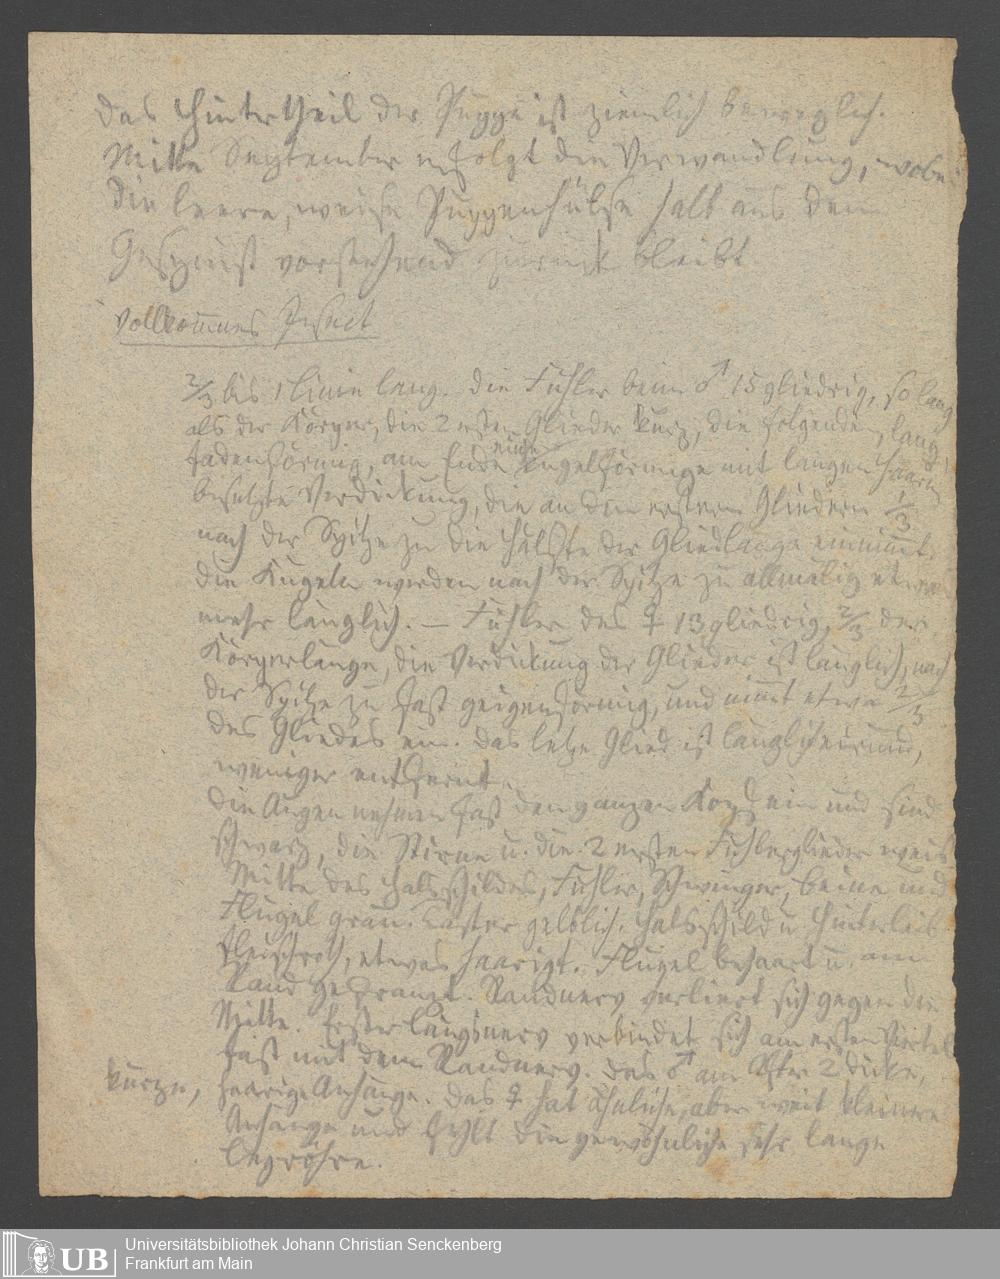 das Hintertheil der Puppe ist ziemlich beweglich.
Mitte September erfolgt die Verwandlung, wobei
die leere, weise Puppenhülse halb aus dem
Gespinst vorstehend zurück bleibt
Vollkom̄nes Insect
2/3 bis 1 Linie lang. die Fühler beim ♂ 15gliedrig, so lang
als der Körper, die 2 ersten Glieder kurz, die folgenden, lang
fadenförmig, am Ende eine kugelförmige mit langen Haaren
besetzte Verdickung, die an den ersten Gliedern 1/3
nach der Spitze zu die Hälfte der Gliedlänge einnim̄t.
die Kugeln werden nach der Spitze zu allmälig etwas
mehr länglich. — Fühler des ♀ 13gliedrig, 2/3 der
Körperlänge, die Verdickung der Glieder ist länglich, nach
der Spitze zu fast geigenförmig, und nim̄t etwa 2/3
des Gliedes ein. das letze Glied ist länglicheirund,
weniger entfernt.
die Augen nehmen fast den ganzen Kopf ein und sind
schwarz, die Stirne u. die 2 ersten Fühlerglieder weis
Mitte des Halsschildes, Fühler, Schwinger, beine und
Flügel grau. Taster gelblich. Halsschild u Hinterleib
fleischroth, etwas haarigt. Flügel behaart u. am
Rand gefranzt. Randnerv verliert sich gegen die
Mitte. Erster Längsnerv verbindet sich am ersten Viertel
fast mit dem Randnerv. das ♂ am After 2 dicke,
kurze, haarige Anhänge. das ♀ hat ähnliche, aber weit kleinere
Anhänge und die gewöhnliche sehr lange
Legröhre.
Universitätsbibliothek Johann Christian Senckenberg
Frankfurt am Main
UB